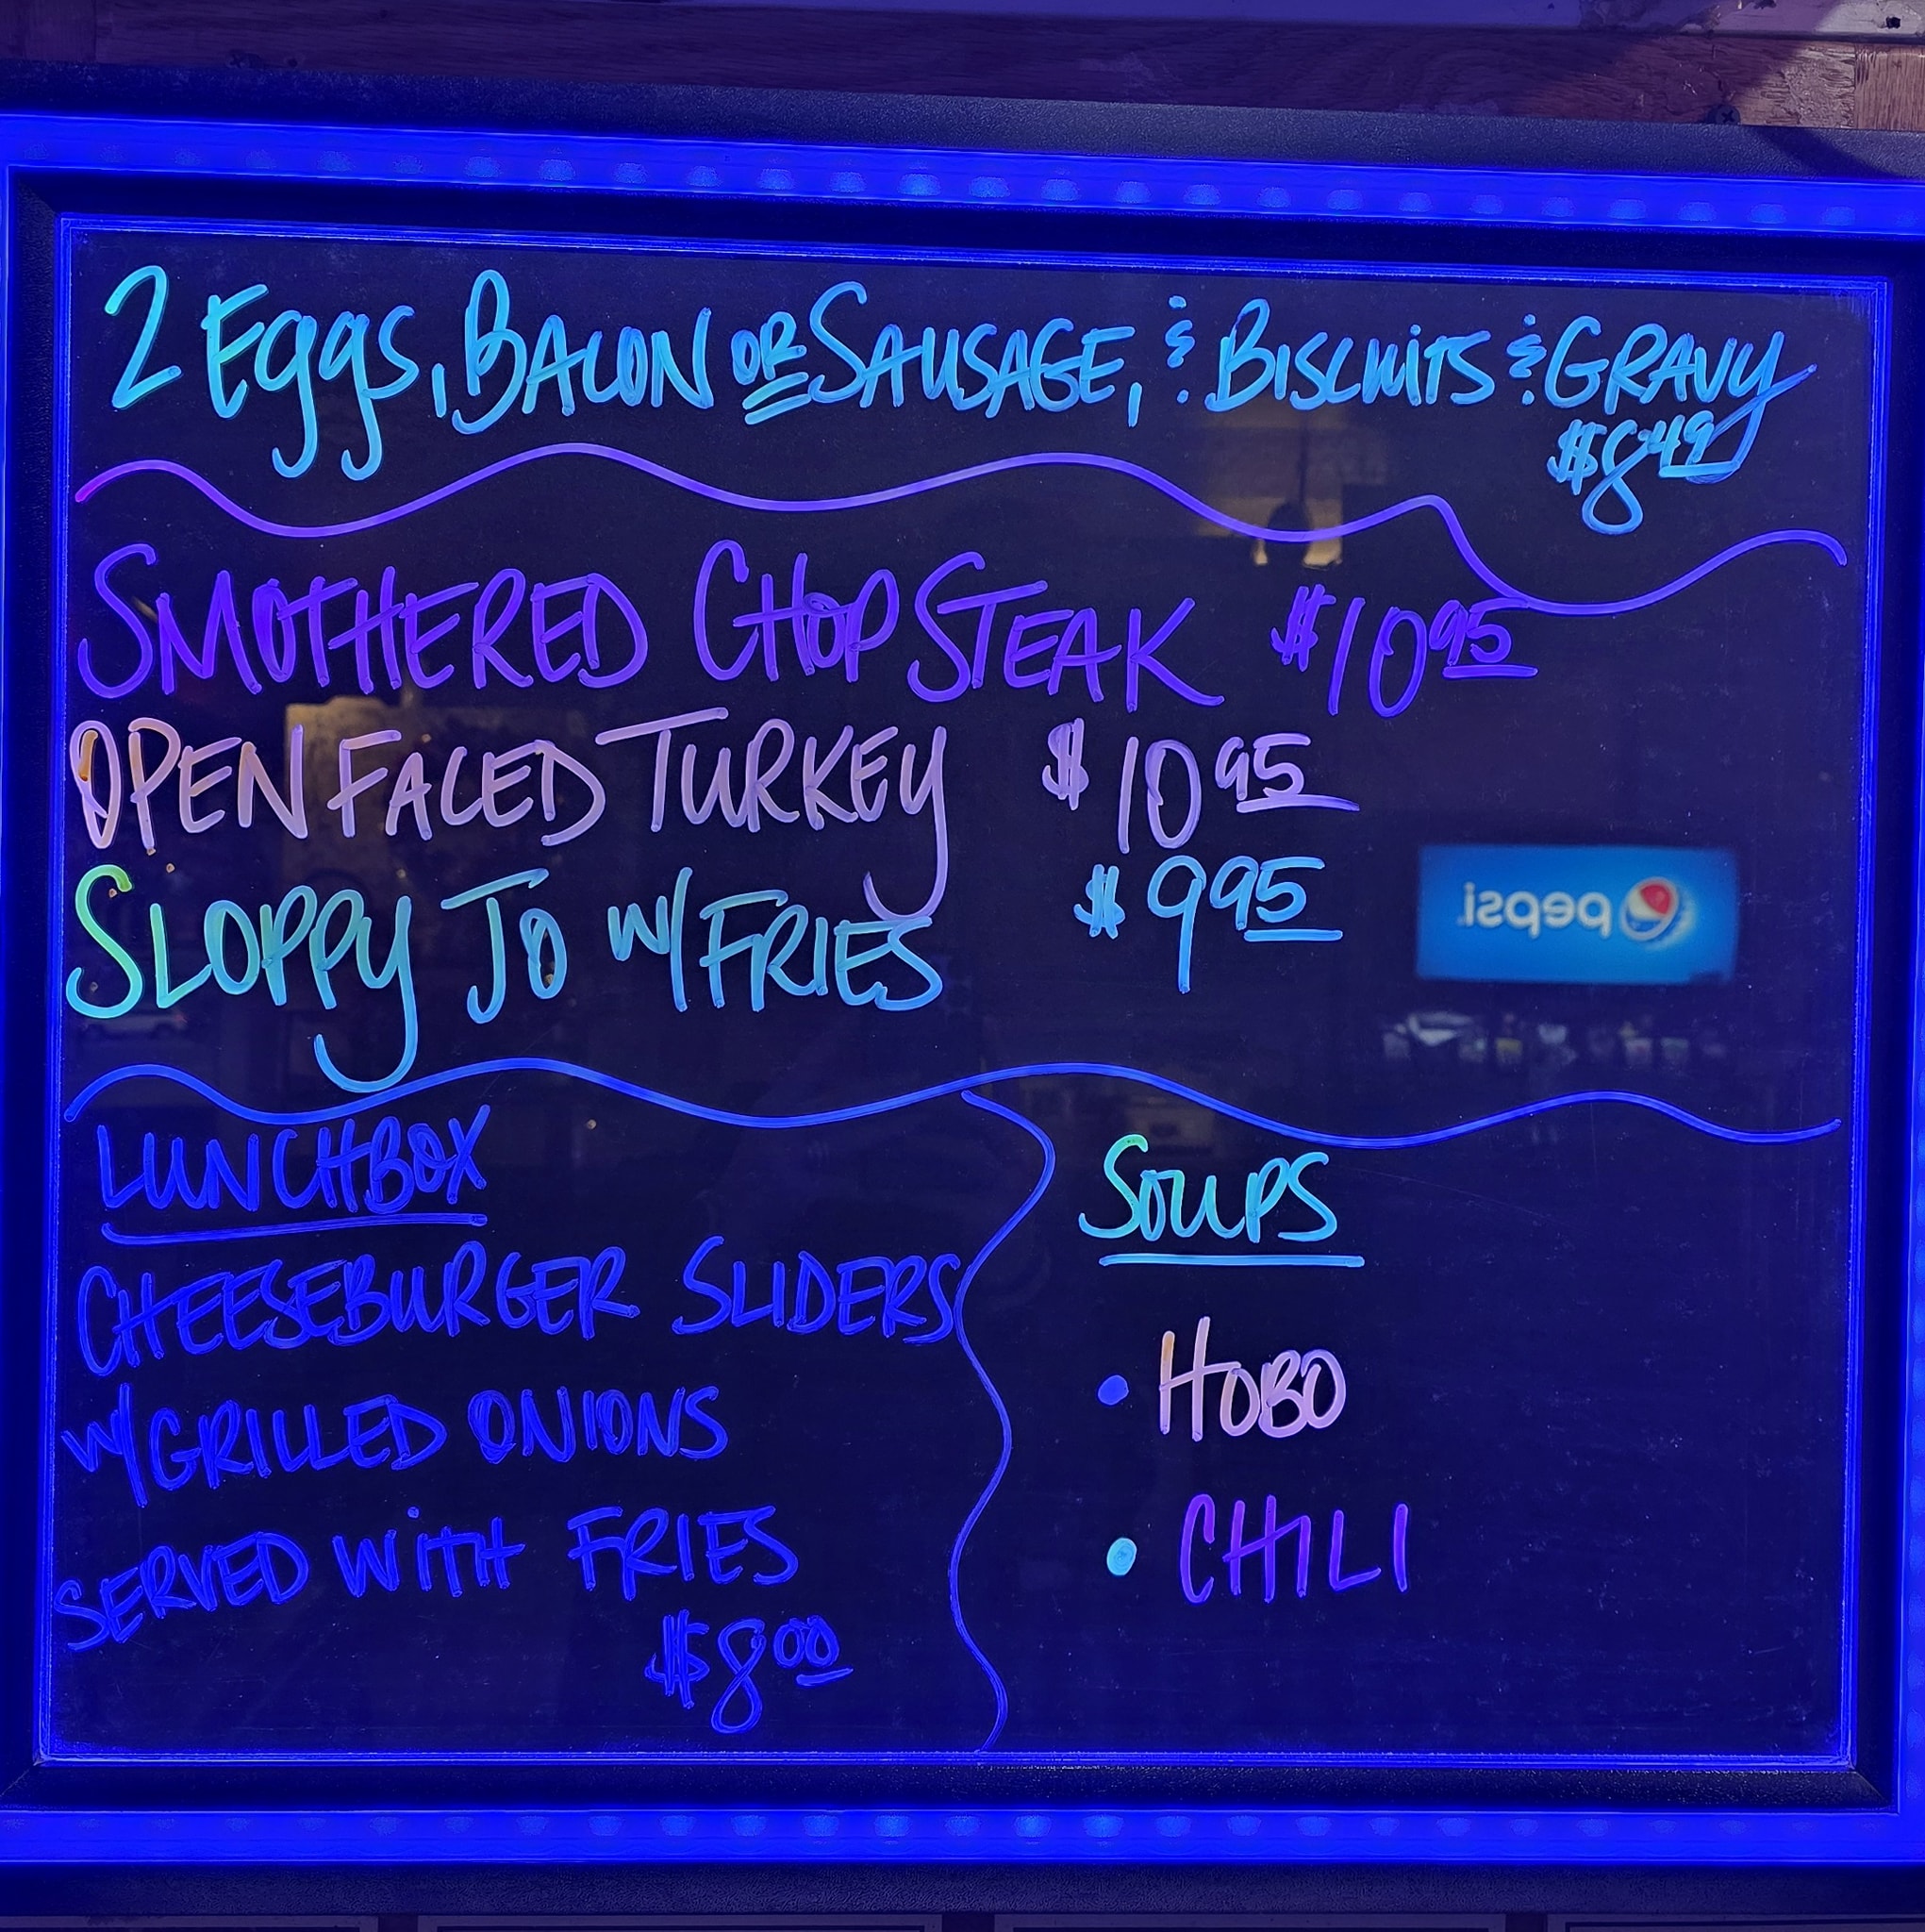 2 Eggs, BACON OR SAUSAGE, & BISCUITS & GRAVY
$8.49
SMOTHERED CHOP STEAK $10 95
OPEN FACED TURKEY $10 95
SLOPPY JO W/ FRIES $9 95
LUNCHBOX
CHEESEBURGER SLIDERS
W/ GRILLED ONIONS
SERVED WITH FRIES
$8 00
SOUPS
• HOBO
• CHILI
pepsi